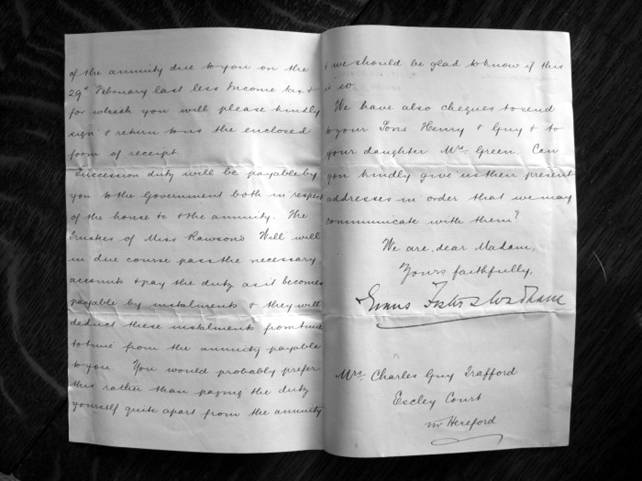 of the annuity due to you on the
29th February last less Income tax &
for which you will please kindly
sign & return to us the enclosed
form of receipt
Succession duty will be payable by
you to the Government both in respect
of the house & the annuity. The
Trustees of Miss Rawson's Will will
in due course pass the necessary
accounts & pay the duty as it becomes
payable by instalments & they will
deduct these instalments from time
to time from the annuity payable
to you You would probably prefer
this rather than paying the duty
yourself quite apart from the annuity
& we should be glad to know if this
is so.
We have also cheques to send
to your Sons Henry & Guy & to
your daughter Mrs Green. Can
you kindly give us their present
addresses in order that we may
communicate with them?
We are, dear Madam,
Yours faithfully,
Evans Foster & Wadham
Mrs. Charles Guy Trafford
Escley Court
nr Hereford